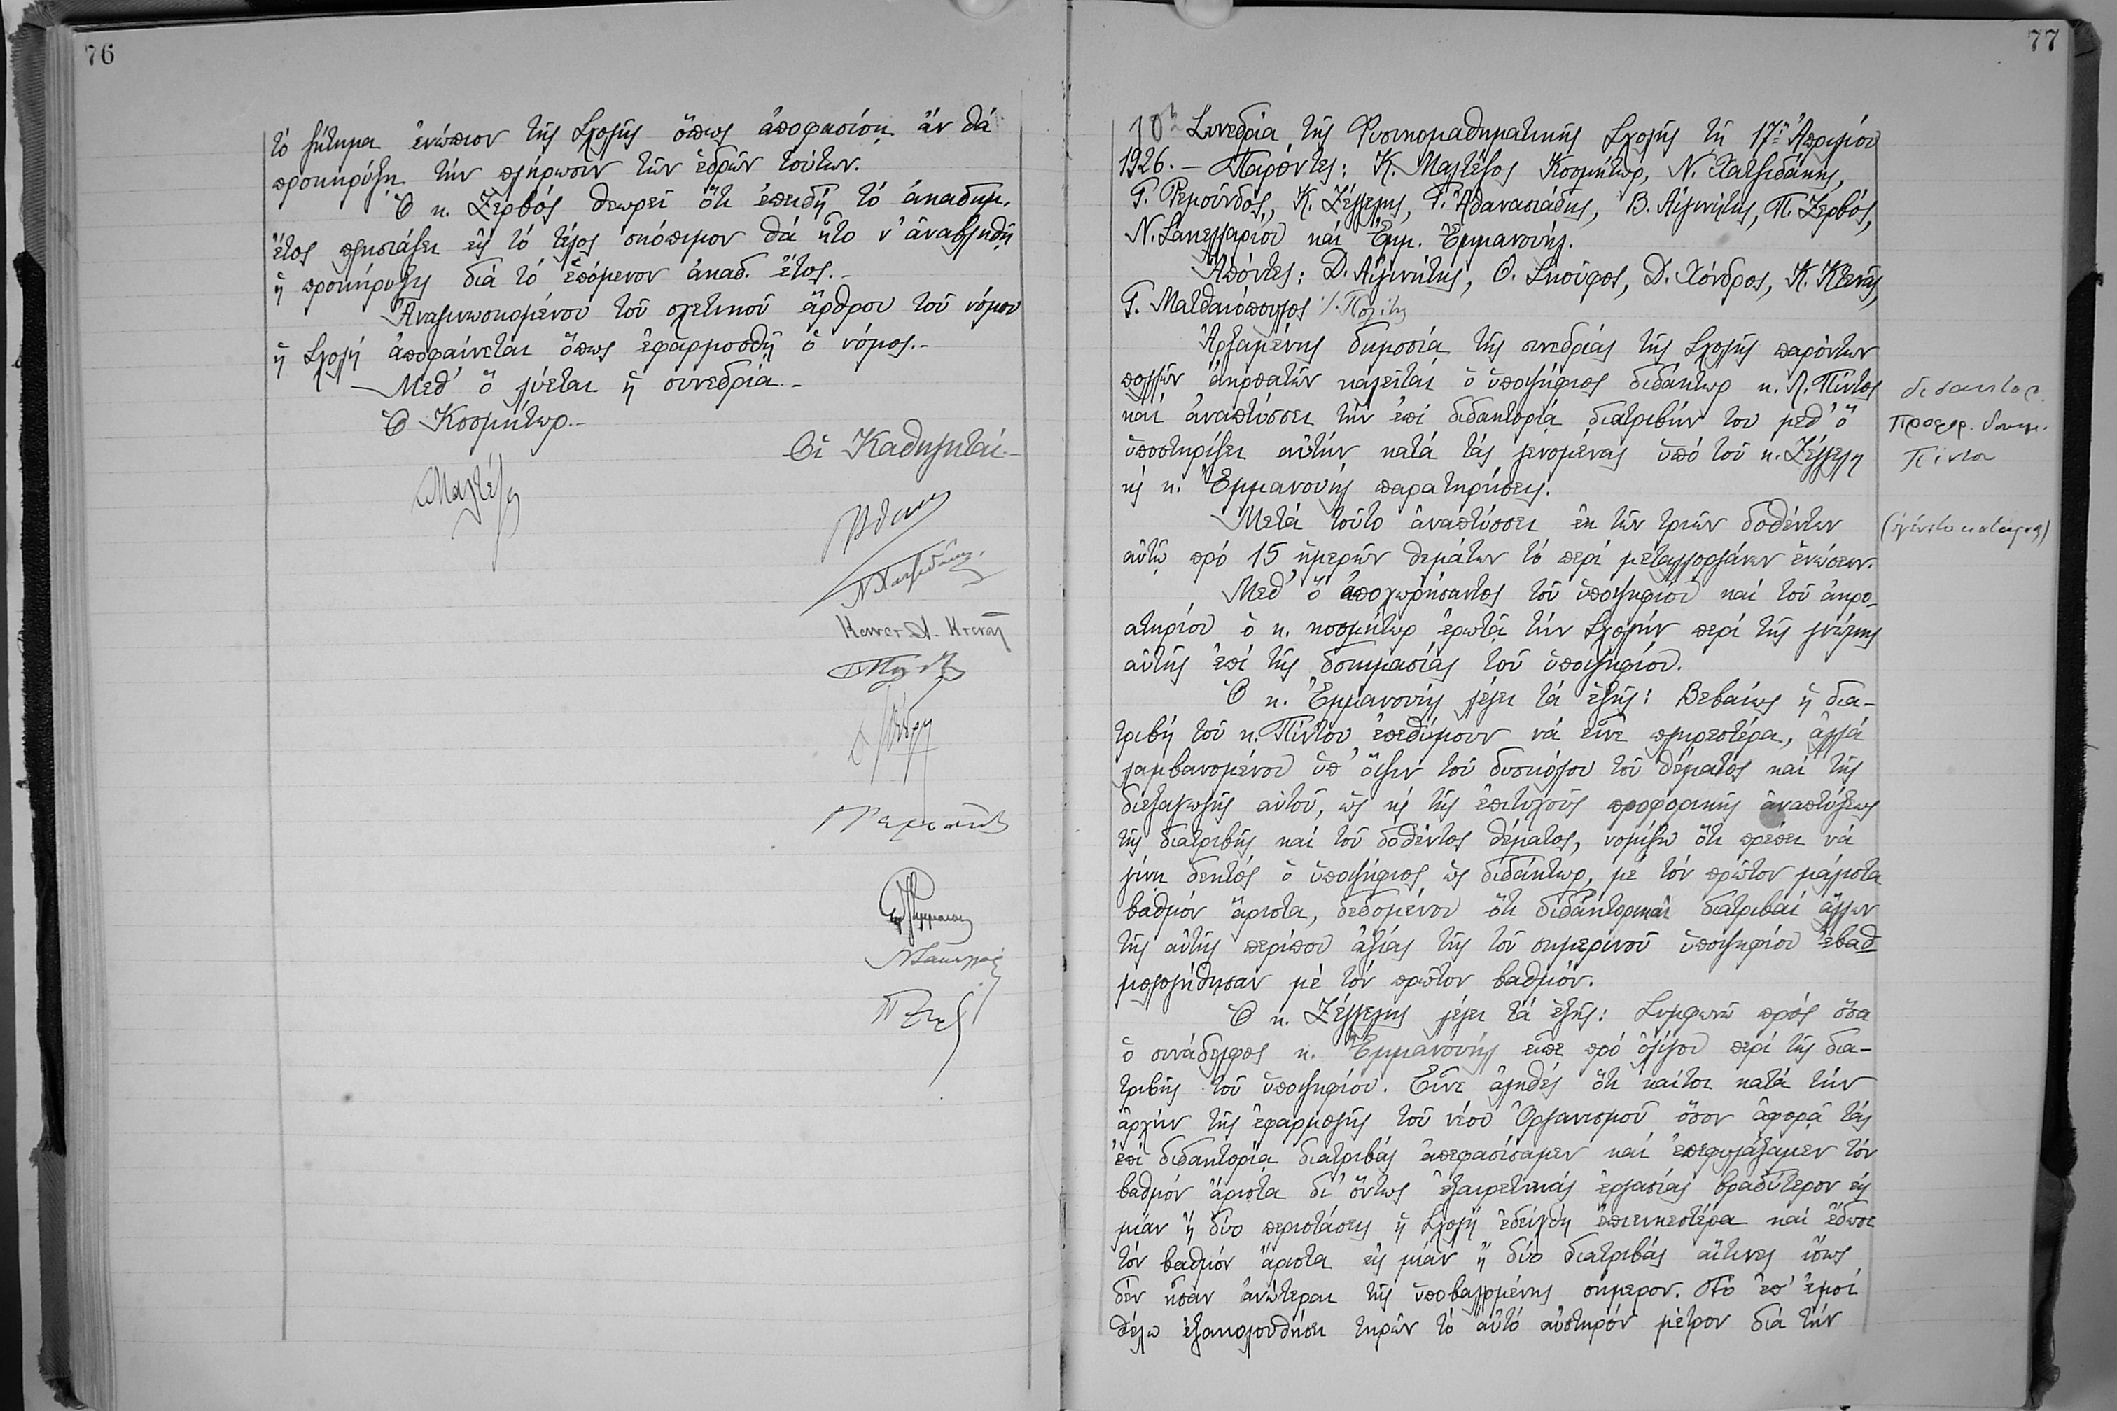 76
τὸ ζήτημα ἐνώπιον τῆς Σχολῆς ὅπως ἀποφασίσῃ ἄν θὰ
προκηρύξῃ τὴν πλήρωσιν τῶν ἑδρῶν τούτων.
Ὁ κ. Ζερβὸς θεωρεῖ ὅτι ἐπειδὴ τὸ ἀκαδημ.
ἔτος πλησιάζει εἰς τὸ τέλος σκόπιμον θὰ ἦτο ν' ἀναβληθῇ
ἡ προκήρυξις διὰ τὸ ἑπόμενον ἀκαδ. ἔτος.-
Ἀναγινωσκομένου τοῦ σχετικοῦ ἄρθρου τοῦ νόμου
ἡ Σχολὴ ἀποφαίνεται ὅπως ἐφαρμοσθῇ ὁ νόμος.-
Μεθ' ὃ λύεται ἡ συνεδρία.-
Ὁ Κοσμήτωρ.-
Οἱ Καθηγηταί.-
Μαλτέζος
77
10η Συνεδρία τῆς Φυσικομαθηματικῆς Σχολῆς τῇ 17ῃ Ἀπριλίου
1926.- Παρόντες: Κ. Μαλτέζος Κοσμήτωρ, Ν. Χατζιδάκης,
Γ. Ρεμοῦνδος, Κ. Ζέγγελης, Γ. Ἀθανασιάδης, Β. Αἰγινήτης, Π. Ζερβός,
Ν. Σακελλαρίου καὶ Ἐμμ. Ἐμμανουήλ.
Ἀπόντες: Δ. Αἰγινήτης, Θ. Σκοῦφος, Δ. Χόνδρος, Κ. Κτενᾶς,
Γ. Ματθαιόπουλος Ἰ. Πολίτης
Ἀρξαμένης δημοσίᾳ τῆς συνεδρίας τῆς Σχολῆς παρόντων
πολλῶν ἀκροατῶν καλεῖται ὁ ὑποψήφιος διδάκτωρ κ. Λ. Πίντος
καὶ ἀναπτύσσει τὴν ἐπὶ διδακτορίᾳ διατριβήν του μεθ' ὃ
ὑποστηρίζει αὐτὴν κατὰ τὰς γενομένας ὑπὸ τοῦ κ. Ζέγγελη
κὶ κ. Ἐμμανουὴλ παρατηρήσεις.
διδακτορ.
Προφορ. δοκιμ.
Πίντου
Μετὰ τοῦτο ἀναπτύσσει ἐκ τῶν τριῶν δοθέντων
αὐτῷ πρὸ 15 ἡμερῶν θεμάτων τὸ περὶ μεταλλοργάνων ἑνώσεων.
Μεθ' ὃ ἀποχωρήσαντος τοῦ ὑποψηφίου καὶ τοῦ ἀκρο-
ατηρίου ὁ κ. κοσμήτωρ ἐρωτᾷ τὴν Σχολὴν περὶ τῆς γνώμης
αὐτῆς ἐπὶ τῆς δοκιμασίας τοῦ ὑποψηφίου.
Ὁ κ. Ἐμμανουὴλ λέγει τὰ ἑξῆς: Βεβαίως ἡ δια-
τριβὴ τοῦ κ. Πίντου ἐπεθύμουν νὰ εἶνε πληρεστέρα, ἀλλὰ
λαμβανομένου ὑπ' ὄψιν τοῦ δυσκόλου τοῦ θέματος καὶ τῆς
διεξαγωγῆς αὐτοῦ, ὡς κὶ τῆς ἐπιτυχοῦς προφορικῆς ἀναπτύξεως
τῆς διατριβῆς καὶ τοῦ δοθέντος θέματος, νομίζω ὅτι πρέπει νὰ
γίνῃ δεκτὸς ὁ ὑποψήφιος ὡς διδάκτωρ, μὲ τὸν πρῶτον μάλιστα
βαθμὸν ἄριστα, δεδομένου ὅτι διδακτορικαὶ διατριβαὶ ἄλλων
τῆς αὐτῆς περίπου ἀξίας τῆς τοῦ σημερινοῦ ὑποψηφίου ἐβαθ
μολογήθησαν μὲ τὸν πρῶτον βαθμόν.
Ὁ κ. Ζέγγελης λέγει τὰ ἑξῆς: Συμφωνῶ πρὸς ὅσα
ὁ συνάδελφος κ. Ἐμμανουὴλ εἶπε πρὸ ὀλίγου περὶ τῆς δια-
τριβῆς τοῦ ὑποψηφίου. Εἶνε ἀληθὲς ὅτι καίτοι κατὰ τὴν
ἀρχὴν τῆς ἐφαρμογῆς τοῦ νέου Ὀργανισμοῦ ὅσον ἀφορᾷ τὰς
ἐπὶ διδακτορίᾳ διατριβὰς ἀπεφασίσαμεν καὶ ἐπεφυλάξαμεν τὸν
βαθμὸν ἄριστα δι' ὄντως ἐξαιρετικὰς ἐργασίας βραδύτερον εἰς
μίαν ἢ δύο περιστάσεις ἡ Σχολὴ ἐδείχθη ἐπιεικεστέρα καὶ ἔδωσε
τὸν βαθμὸν ἄριστα εἰς μίαν ἢ δύο διατριβὰς αἵτινες ἴσως
δὲν ἦσαν ἀνώτεραι τῆς ὑποβαλλομένης σήμερον. Τὸ ἐπ' ἐμοὶ
θέλω ἐξακολουθήσει τηρῶν τὸ αὐτὸ αὐστηρὸν μέτρον διὰ τὴν